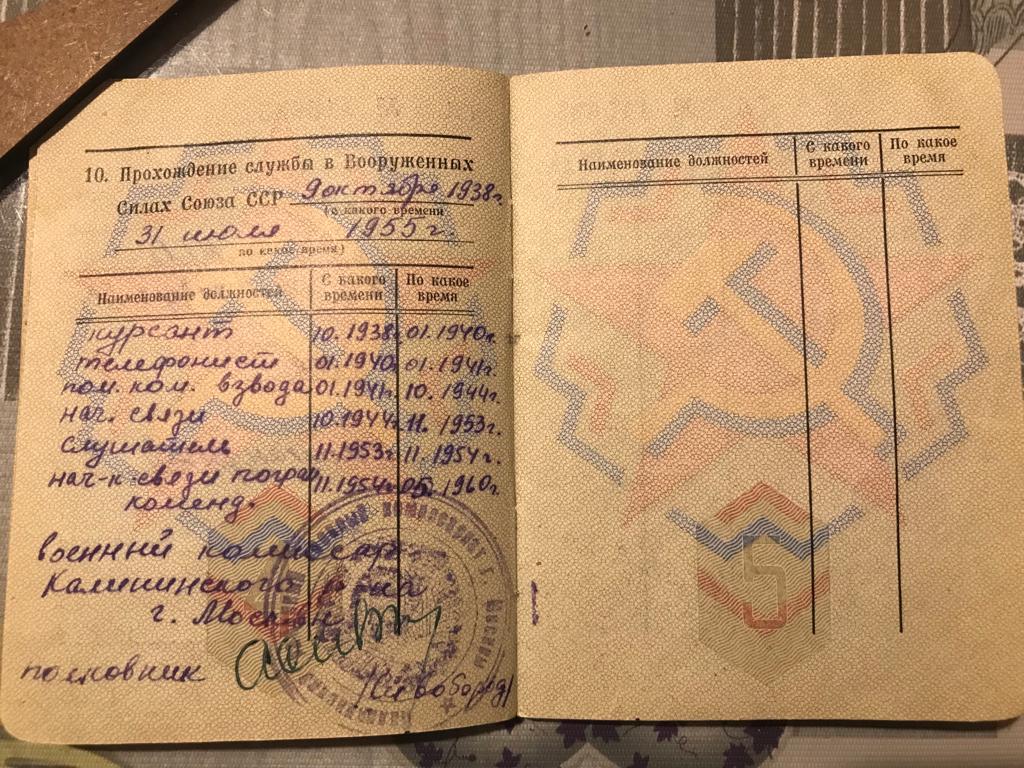 10. Прохождение службы в Вооруженных
Силах Союза ССР 9 октября 1938г.
(с какого времени
31 июля 1955 г.
по какое время)
Наименование должностей С какого времени По какое время
курсант 10.1938г. 01.1940г.
телефонист 01.1940г. 01.1941г.
пом. ком. взвода 01.1941г. 10.1944г.
нач. связи 10.1944г. 11.1953г.
слушатель 11.1953г. 11.1954г.
нач-к связи погран 11.1954г. 05.1960г.
коменд.
военный комиссар
Калининского р-на
г. Москвы
полковник
Наименование должностей С какого времени По какое время
5